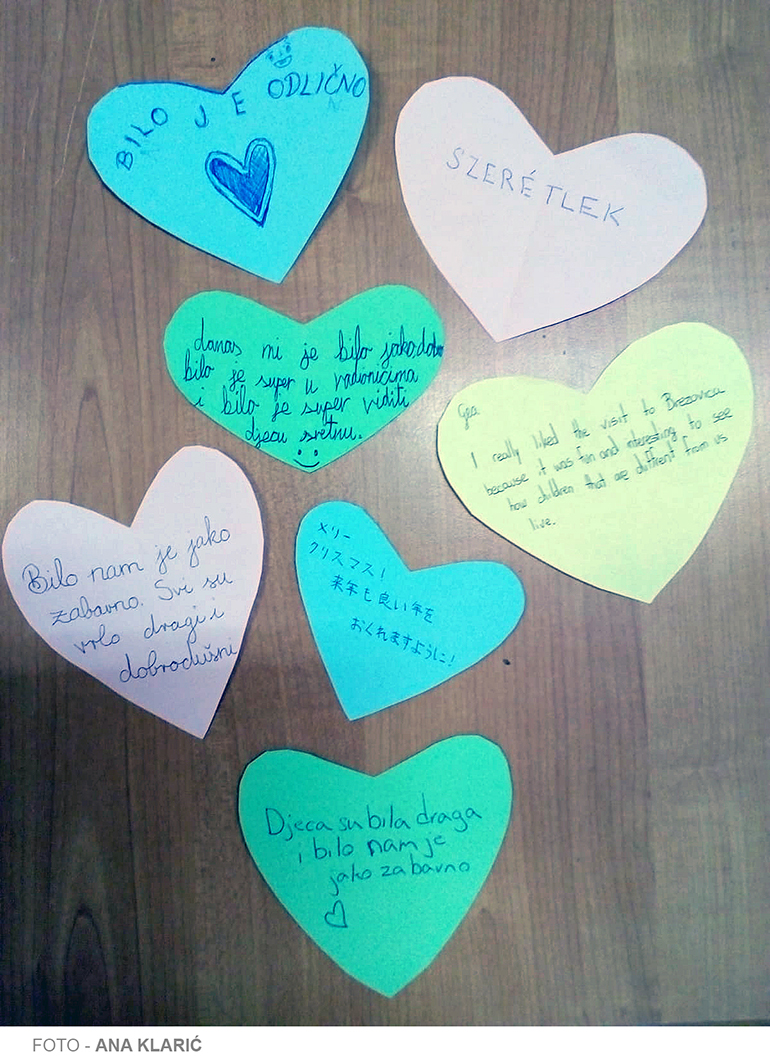 BILO JE ODLIČNO
SZERÉTLEK
danas mi je bilo jako dobro
bilo je super u radionicima
i bilo je super viditi
djecu sretnu.
Gea
I really liked the visit to Brezovica
because it was fun and interesting to see
how children that are diffrent from us
live.
Bilo nam je jako
zabavno. Svi su
vrlo dragi i
dobrodušni
メリー
クリスマス!
来年も良い年を
おくれますように!
Djeca su bila draga
i bilo nam je
jako zabavno
FOTO - ANA KLARIĆ